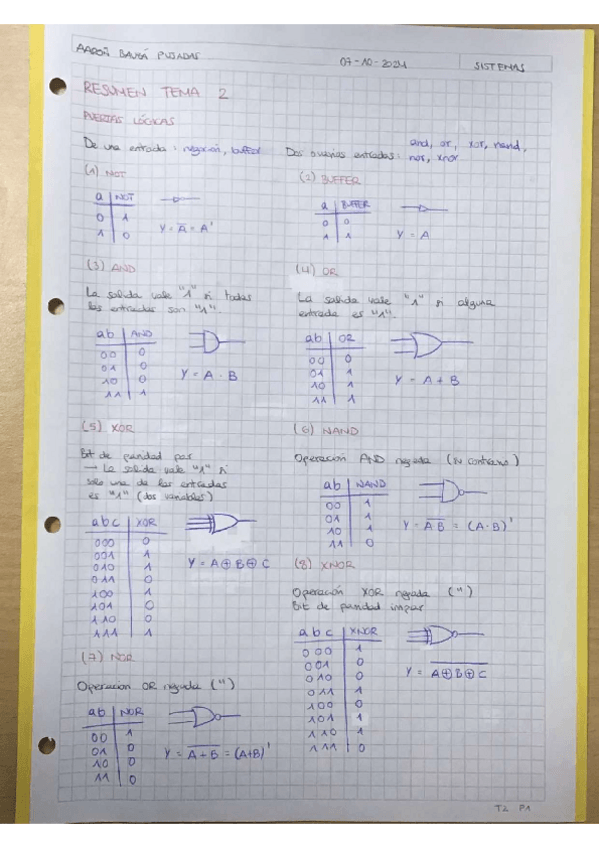 AARON BAUZÁ PUJADAS
07-10-2021
SISTEMAS
RESUMEN TEMA 2
PUERTAS LÓGICAS
De una entrada: negación, buffer
Dos o varias entradas: and, or, xor, nand,
nor, xnor
(1) NOT
a | NOT
0 | 1
1 | 0
Y = A̅ = A'
(2) BUFFER
a | BUFFER
0 | 0
1 | 1
Y = A
(3) AND
La salida vale "1" si todas
las entradas son "1"
ab | AND
00 | 0
01 | 0
10 | 0
11 | 1
Y = A · B
(4) OR
La salida vale "1" si alguna
entrada es "1".
ab | OR
00 | 0
01 | 1
10 | 1
11 | 1
Y = A + B
(5) XOR
Bit de paridad par
→ La salida vale "1" si
solo una de las entradas
es "1" (dos variables)
abc | XOR
000 | 0
001 | 1
010 | 1
011 | 0
100 | 1
101 | 0
110 | 0
111 | 1
Y = A⊕B⊕C
(6) NAND
Operación AND negada (su contrario)
ab | NAND
00 | 1
01 | 1
10 | 1
11 | 0
Y = A̅B̅ = (A·B)'
(7) NOR
Operación OR negada (")
ab | NOR
00 | 1
01 | 0
10 | 0
11 | 0
Y = A̅+̅B̅ = (A+B)'
(8) XNOR
Operación XOR negada (")
Bit de paridad impar
abc | XNOR
000 | 1
001 | 0
010 | 0
011 | 1
100 | 0
101 | 1
110 | 1
111 | 0
Y = A̅⊕̅B̅⊕̅C̅
T2 P1